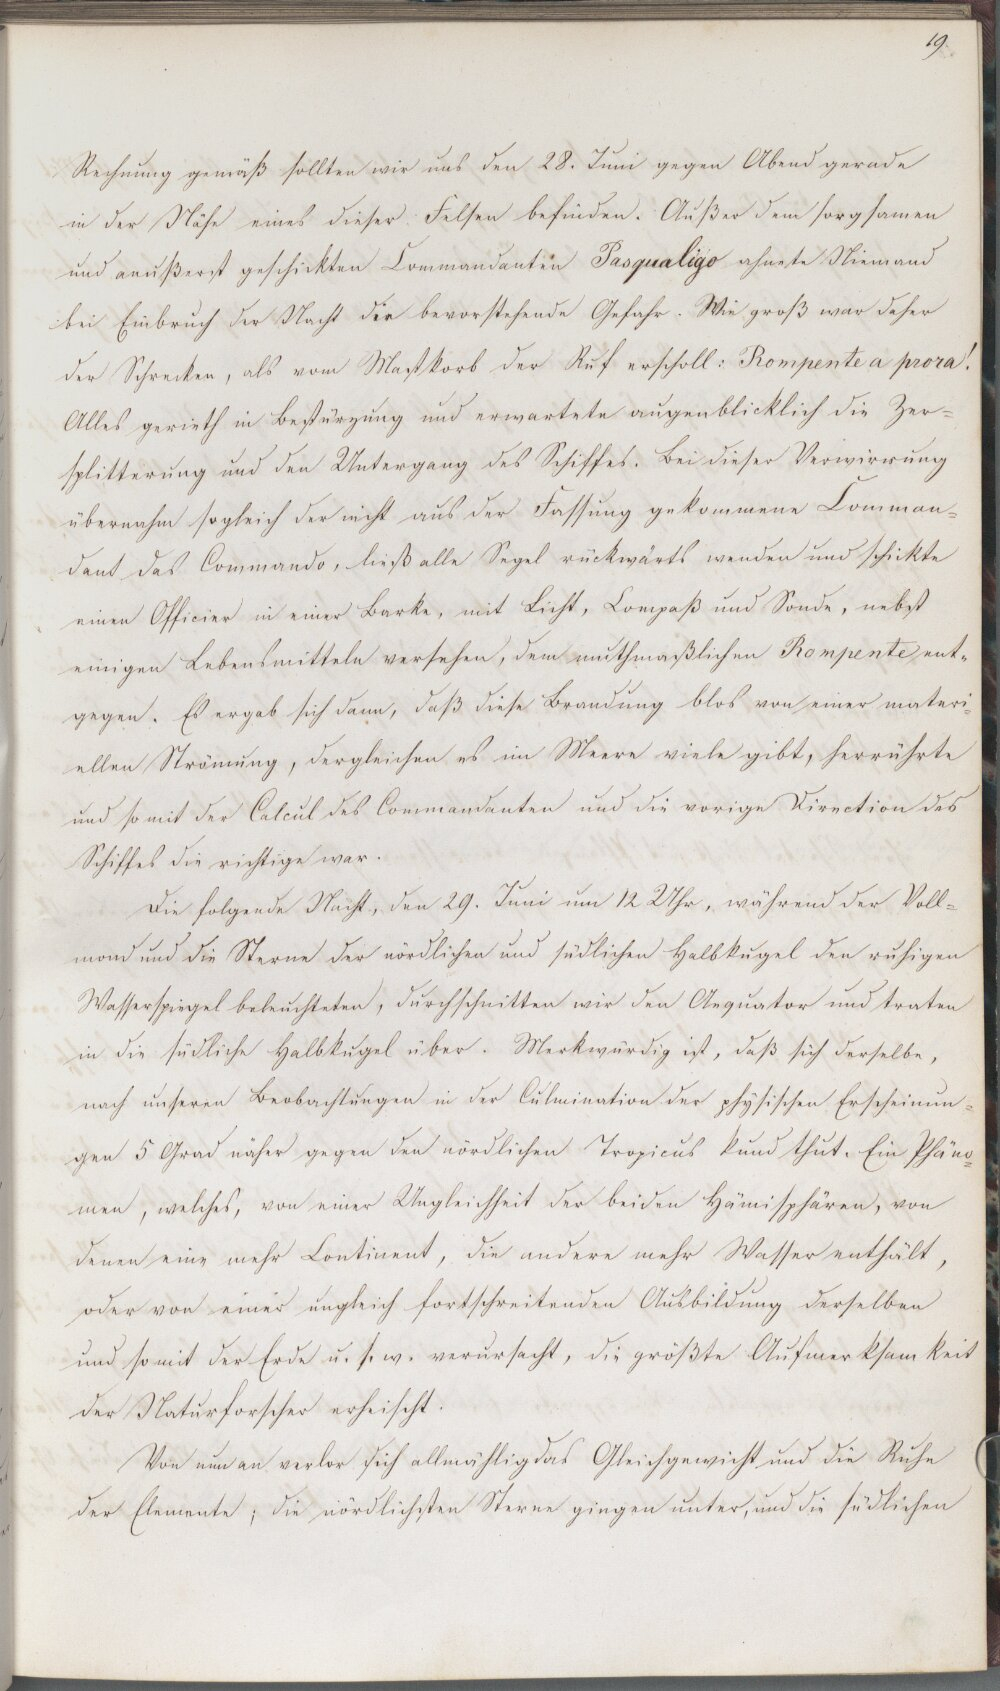 19.
Rechnung gemäß sollten wir uns den 28. Juni gegen Abend gerade
in der Nähe eines dieser Felsen befinden. Außer dem sorgsamen
und aeußerst geschickten Commandanten Pasqualigo ahnete Niemand
bei Einbruch der Nacht die bevorstehende Gefahr. Wie groß war daher
der Schrecken, als vom Mastkorb der Ruf erscholl: Rompente a prora!
Alles gerieth in Bestürzung und erwartete augenblicklich die Zer=
splitterung und den Untergang des Schiffes. Bei dieser Verwirrung
übernahm sogleich der nicht aus der Fassung gekommene Comman=
dant das Commando, ließ alle Segel rückwärts wenden und schickte
einen Officier in einer Barke, mit Licht, Compaß und Sonde, nebst
einigen Lebensmitteln versehen, dem muthmaßlichen Rompente ent=
gegen. Es ergab sich dann, daß diese Brandung blos von einer materi=
ellen Strömung, dergleichen es im Meere viele gibt, herrührte
und somit der Calcul des Commandanten und die vorige Direction des
Schiffes die richtige war.
Die folgende Nacht, den 29. Juni um 12 Uhr, während der Voll=
mond und die Sterne der nördlichen und südlichen Halbkugel den ruhigen
Wasserspiegel beleuchteten, durchschnitten wir den Aequator und traten
in die südliche Halbkugel über. Merkwürdig ist, daß sich derselbe,
nach unseren Beobachtungen in der Culmination der physischen Erscheinun=
gen 5 Grad näher gegen den nördlichen Tropicus kund thut. Ein Phäno=
men, welches, von einer Ungleichheit der beiden Hämisphären, von
denen eine mehr Continent, die andere mehr Wasser enthält,
oder von einer ungleich fortschreitenden Ausbildung derselben
und somit der Erde u. s. w. verursacht, die größte Aufmerksamkeit
der Naturforscher erheischt.
Von nun an verlor sich allmählig das Gleichgewicht und die Ruhe
der Elemente; die nördlichsten Sterne gingen unter, und die südlichen